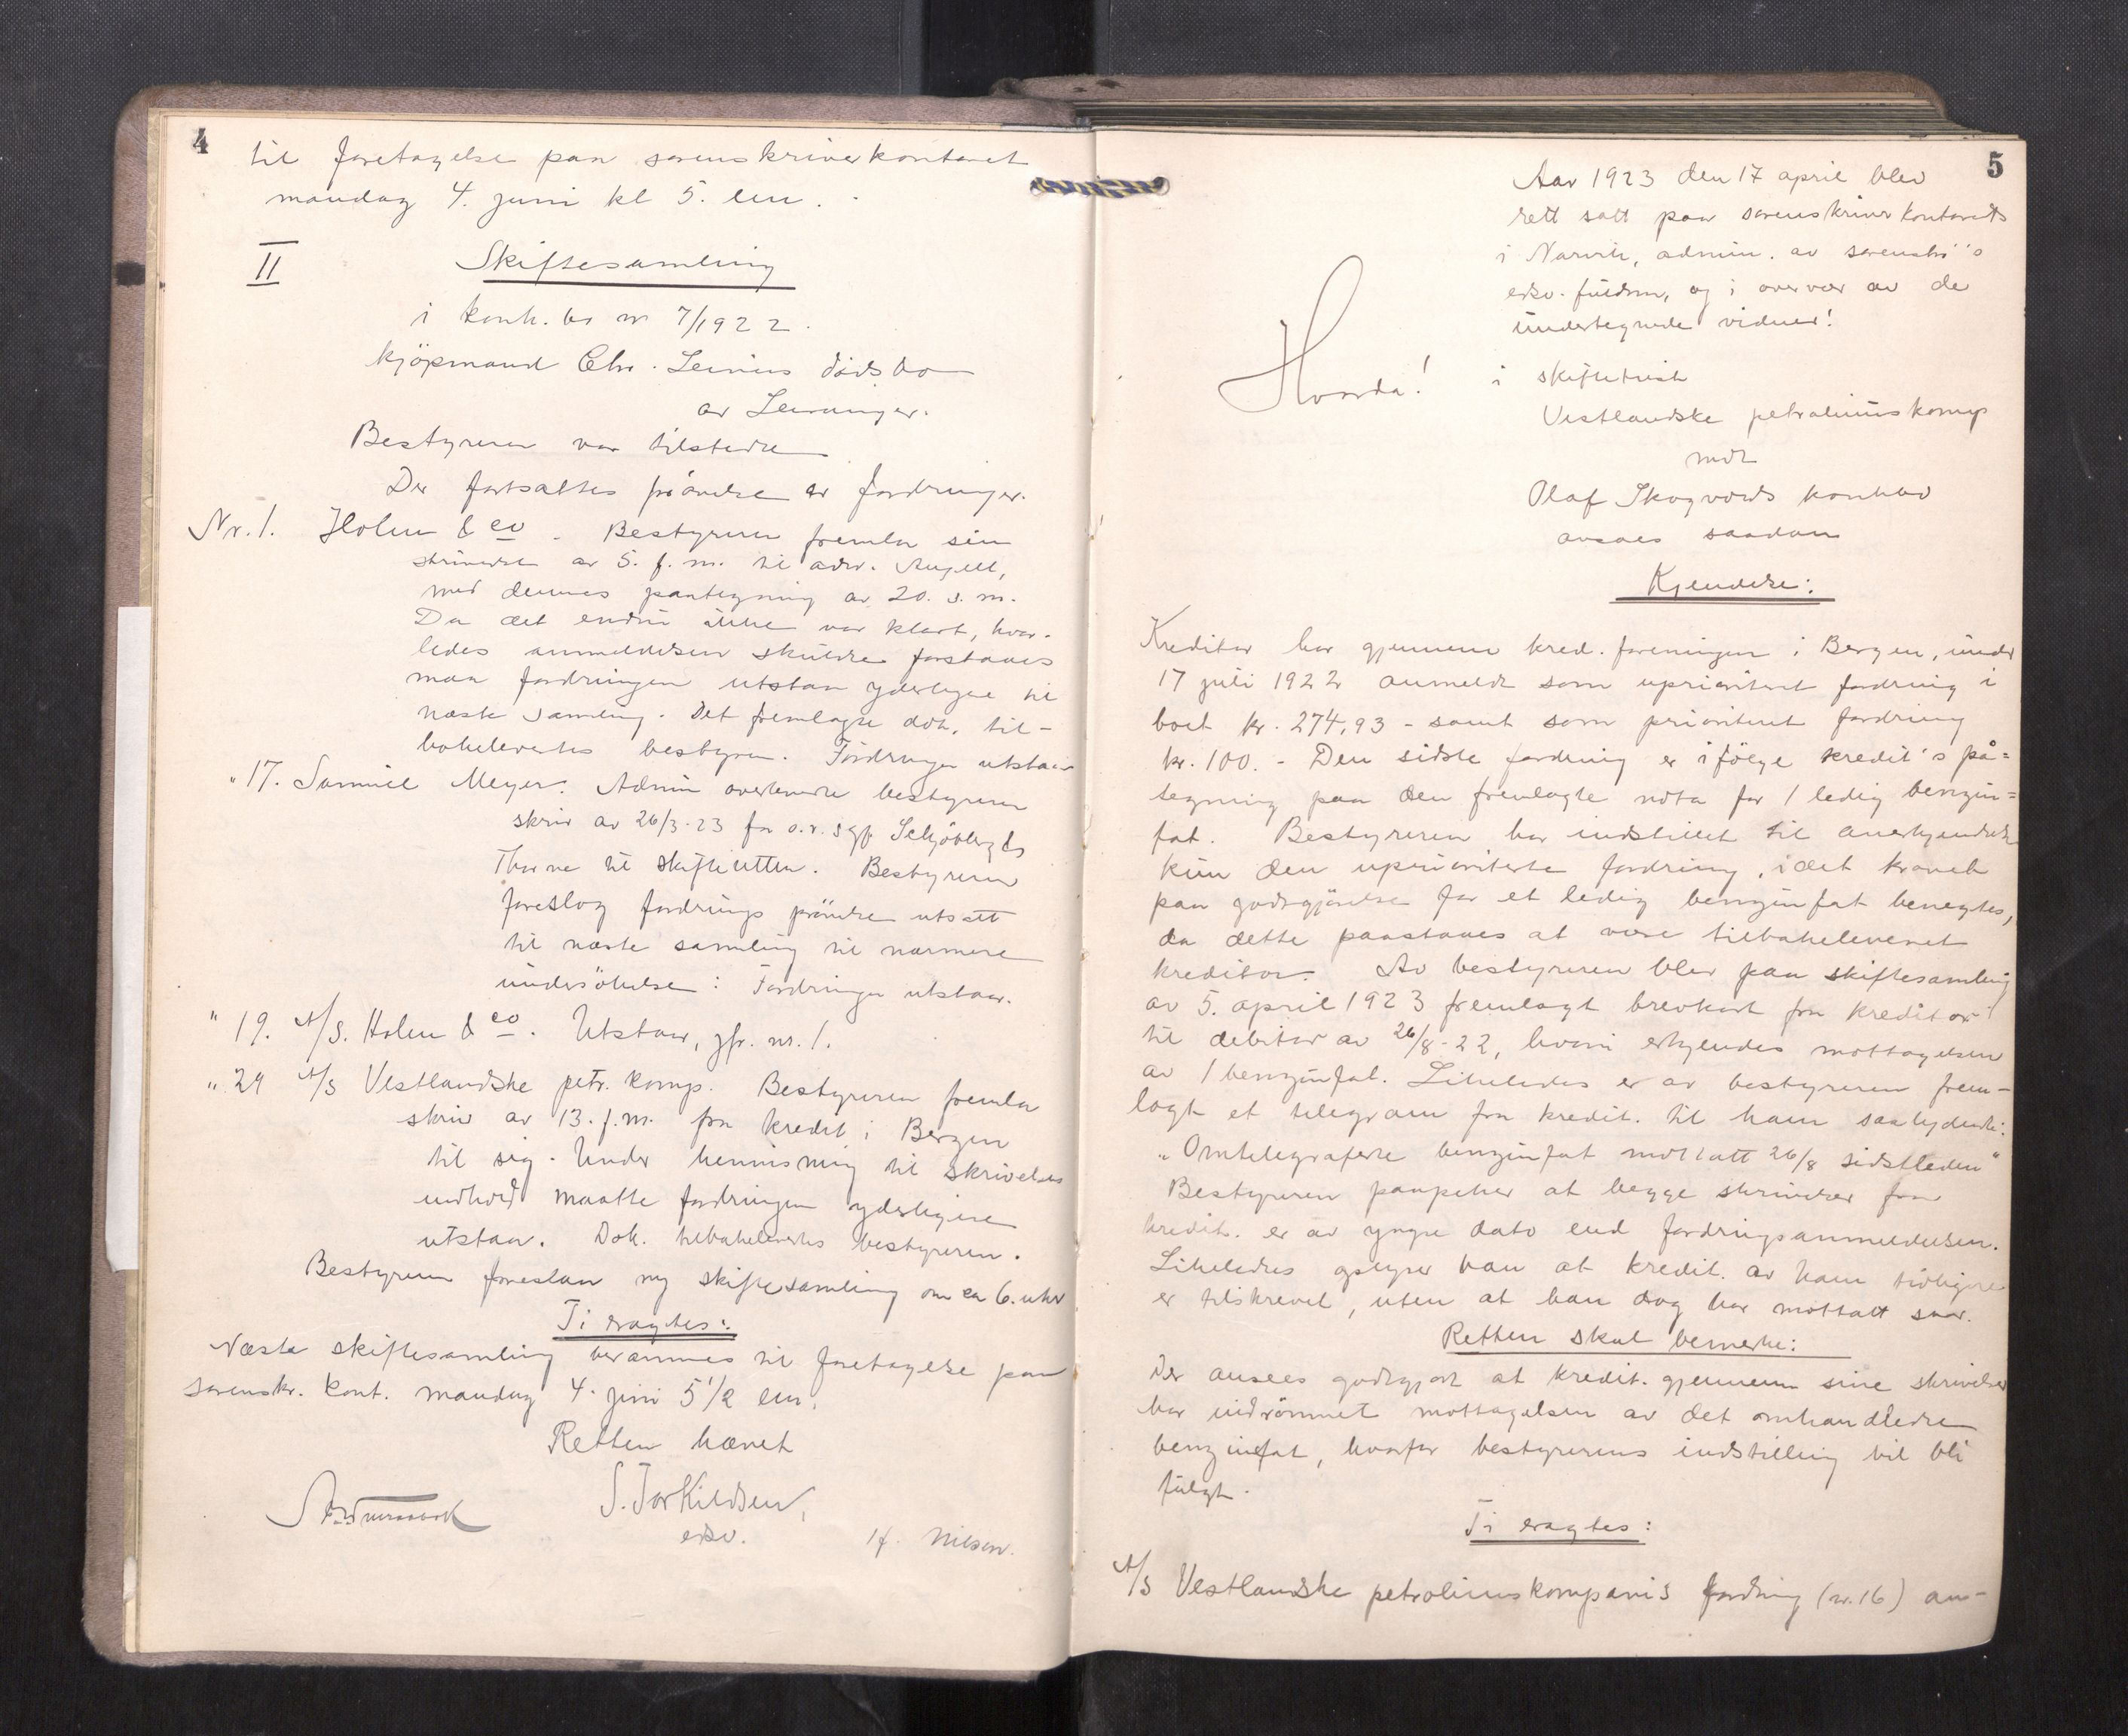 4
til foretagelse paa sorenskriverkontoret
mandag 4. juni kl 5. em.
II
Skiftesamling
i konk. bo nr 7/1922.
kjöpmand Chr. Leiners dödsbo
av Leiranger.
Bestyreren var tilstede
Der fortsattes prövelse av fordringer.
Nr. 1. Holm & co. Bestyreren fremla sin
skrivelse av 5. f. m. til adv. Angell,
med dennes paategning av 20. s. m.
Da det endnu ikke var klart, hvor-
ledes anmeldelsen skulde forstaaes
maa fordringen utstaa yderligere til
næste samling. Det fremlagte dok. til-
bakelevertes bestyrer. Fordringen utstaar
" 17. Samuel Meyer. Admin overleverte bestyreren
skriv av 26/3-23 fra o.r. sgf. Schjödberg
Thorne til skifteretten. Bestyreren
foreslog fordrings prövelse utsatt
til næste samling til nærmere
undersökelse: Fordringen utstaar.
" 19. A/S. Holm & co. Utstaar, jfr. nr. 1.
" 29 A/S Vestlandske petr. komp. Bestyreren fremla
skriv av 13. f. m. fra kredit. i Bergen
til sig. Under henvisning til skrivelsens
indhold maatte fordringen yderligere
utstaa. Dok. tilbakelevertes bestyreren.
Bestyreren foreslaar ny skiftesamling om ca 6. uker
Ti eragtes:
Næste skiftesamling berammes til foretagelse paa
sorenskr. kont. mandag 4. juni 5 1/2 em.
Retten hævet
S. Torkildsen,
edsv.
H. Nilsen.
5
Aar 1923 den 17 april blev
rett satt paa sorenskriverkontorets
i Narvik, admin. av sorenskr's
edsv. fuldm, og i overvær av de
undertegnede vidner!
Hvorda!
i skiftetvist
Vestlandske petroliumskomp
mot
Olaf Skogvolds konkbo
avsaes saadan
Kjendelse:
Kreditor har gjennem kred. foreningen i Bergen, under
17 juli 1922 anmeldt som uprioritert fordring i
boet kr. 274,93 - samt som prioritert fordring
kr. 100. - Den sidste fordring er ifölge kredit's på=
tegning paa den fremlagte nota for 1 ledig benzin=
fat. Bestyreren har indstillet til anerkjendelse
kun den uprioriterte fordring, idet kravet
paa godtgjörelse for et ledig benzinfat benegtes,
da dette paastaaes at være tilbakelevert
kreditor. Av bestyreren blev paa skiftesamling
av 5. april 1923 fremlagt brevkort fra kreditor
til debitor av 26/8-22, hvori erkjendes mottagelsen
av 1 benzinfat. Likeledes er av bestyreren frem-
lagt et telegram fra kredit. til ham saalydende:
"Omtelegraferte benzinfat mottatt 26/8 sidstleden"
Bestyreren paapeker at begge skrivelser fra
kredit. er av yngre dato end fordringsanmeldelsen.
Likeledes oplyser han at kredit. av ham tidligere
er tilskrevet, uten at han dog har mottatt svar.
Retten skal bemerke:
Der ansees godtgjort at kredit. gjennem sine skrivelser
har indrömmet mottagelsen av det omhandlede
benzinfat, hvorfor bestyrerens indstilling vil bli
fulgt.
Ti eragtes:
A/S Vestlandske petroliumskompanis fordring (nr. 16) an-